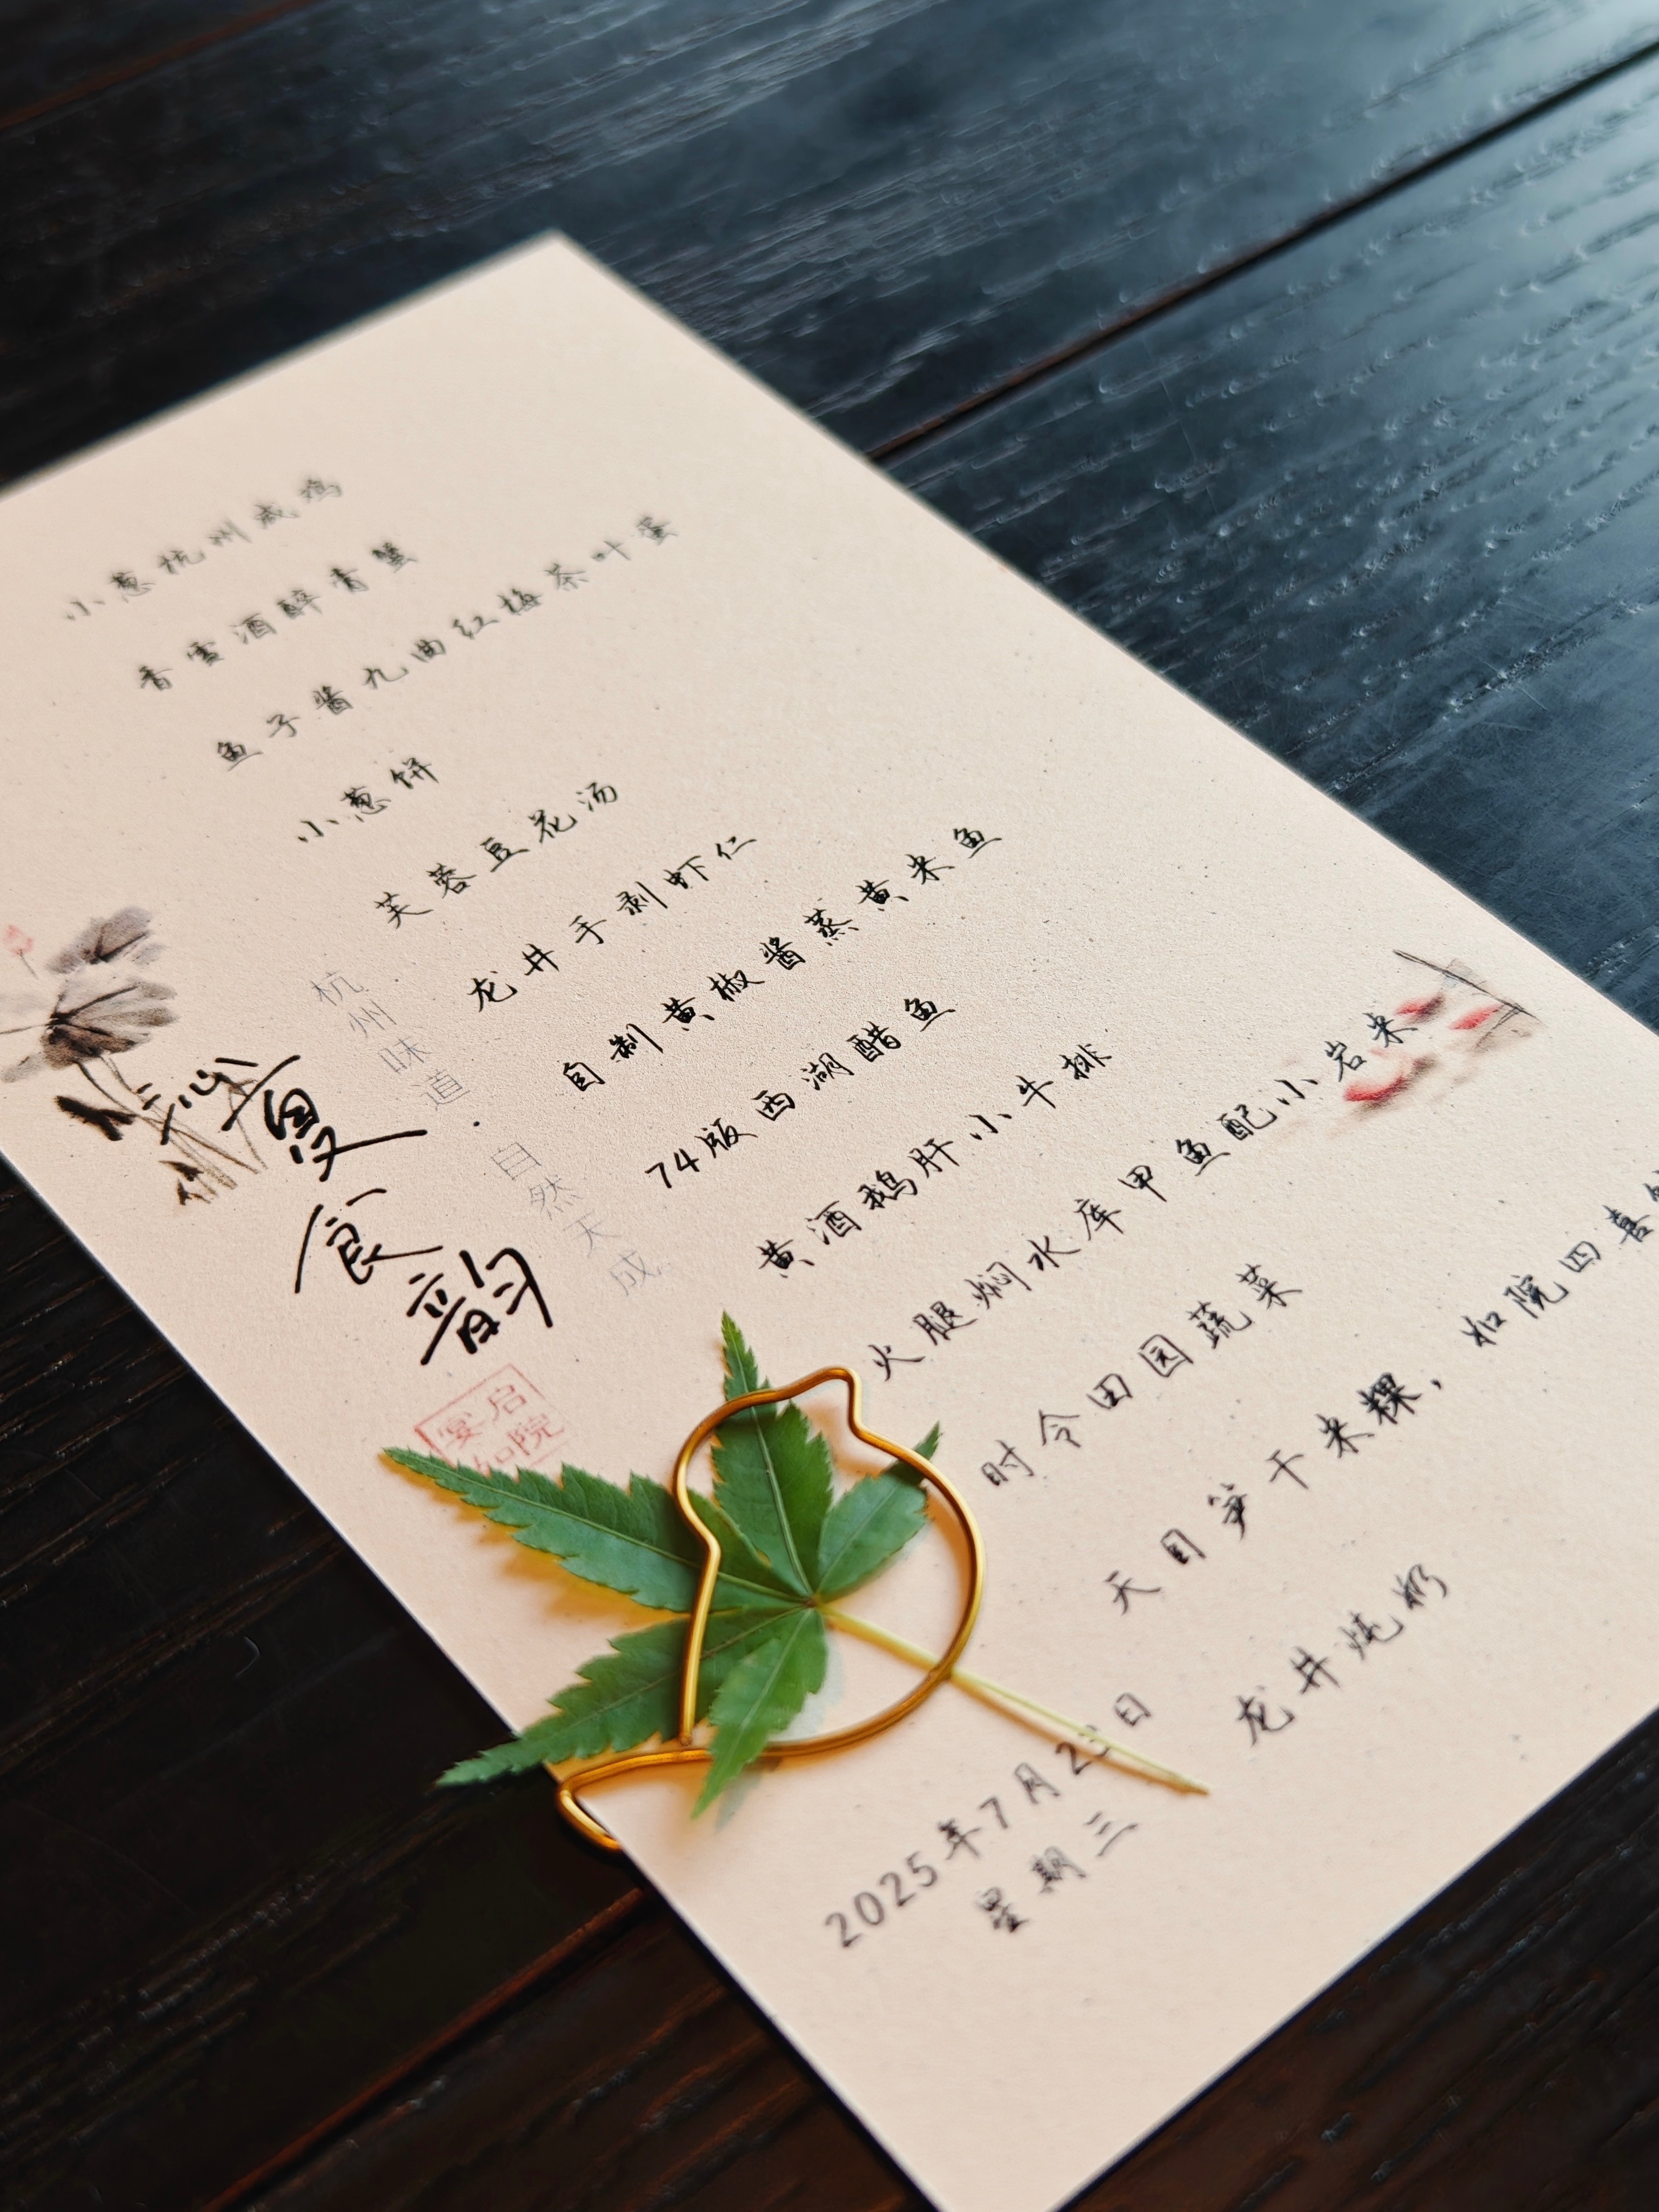 小葱杭州咸鸡
香雪酒醉青蟹
鱼子酱九曲红梅茶叶蛋
小葱饼
芙蓉豆花汤
龙井手剥虾仁
自制黄椒酱蒸黄米鱼
74版西湖醋鱼
黄酒鹅肝小牛排
火腿焖水库甲鱼配小岩米
时令田园蔬菜
天目笋干米粿， 如院四喜
龙井炖奶
2025年7月2日
星期三
杭州味道·自然天成
夏
食韵
启院
宴如